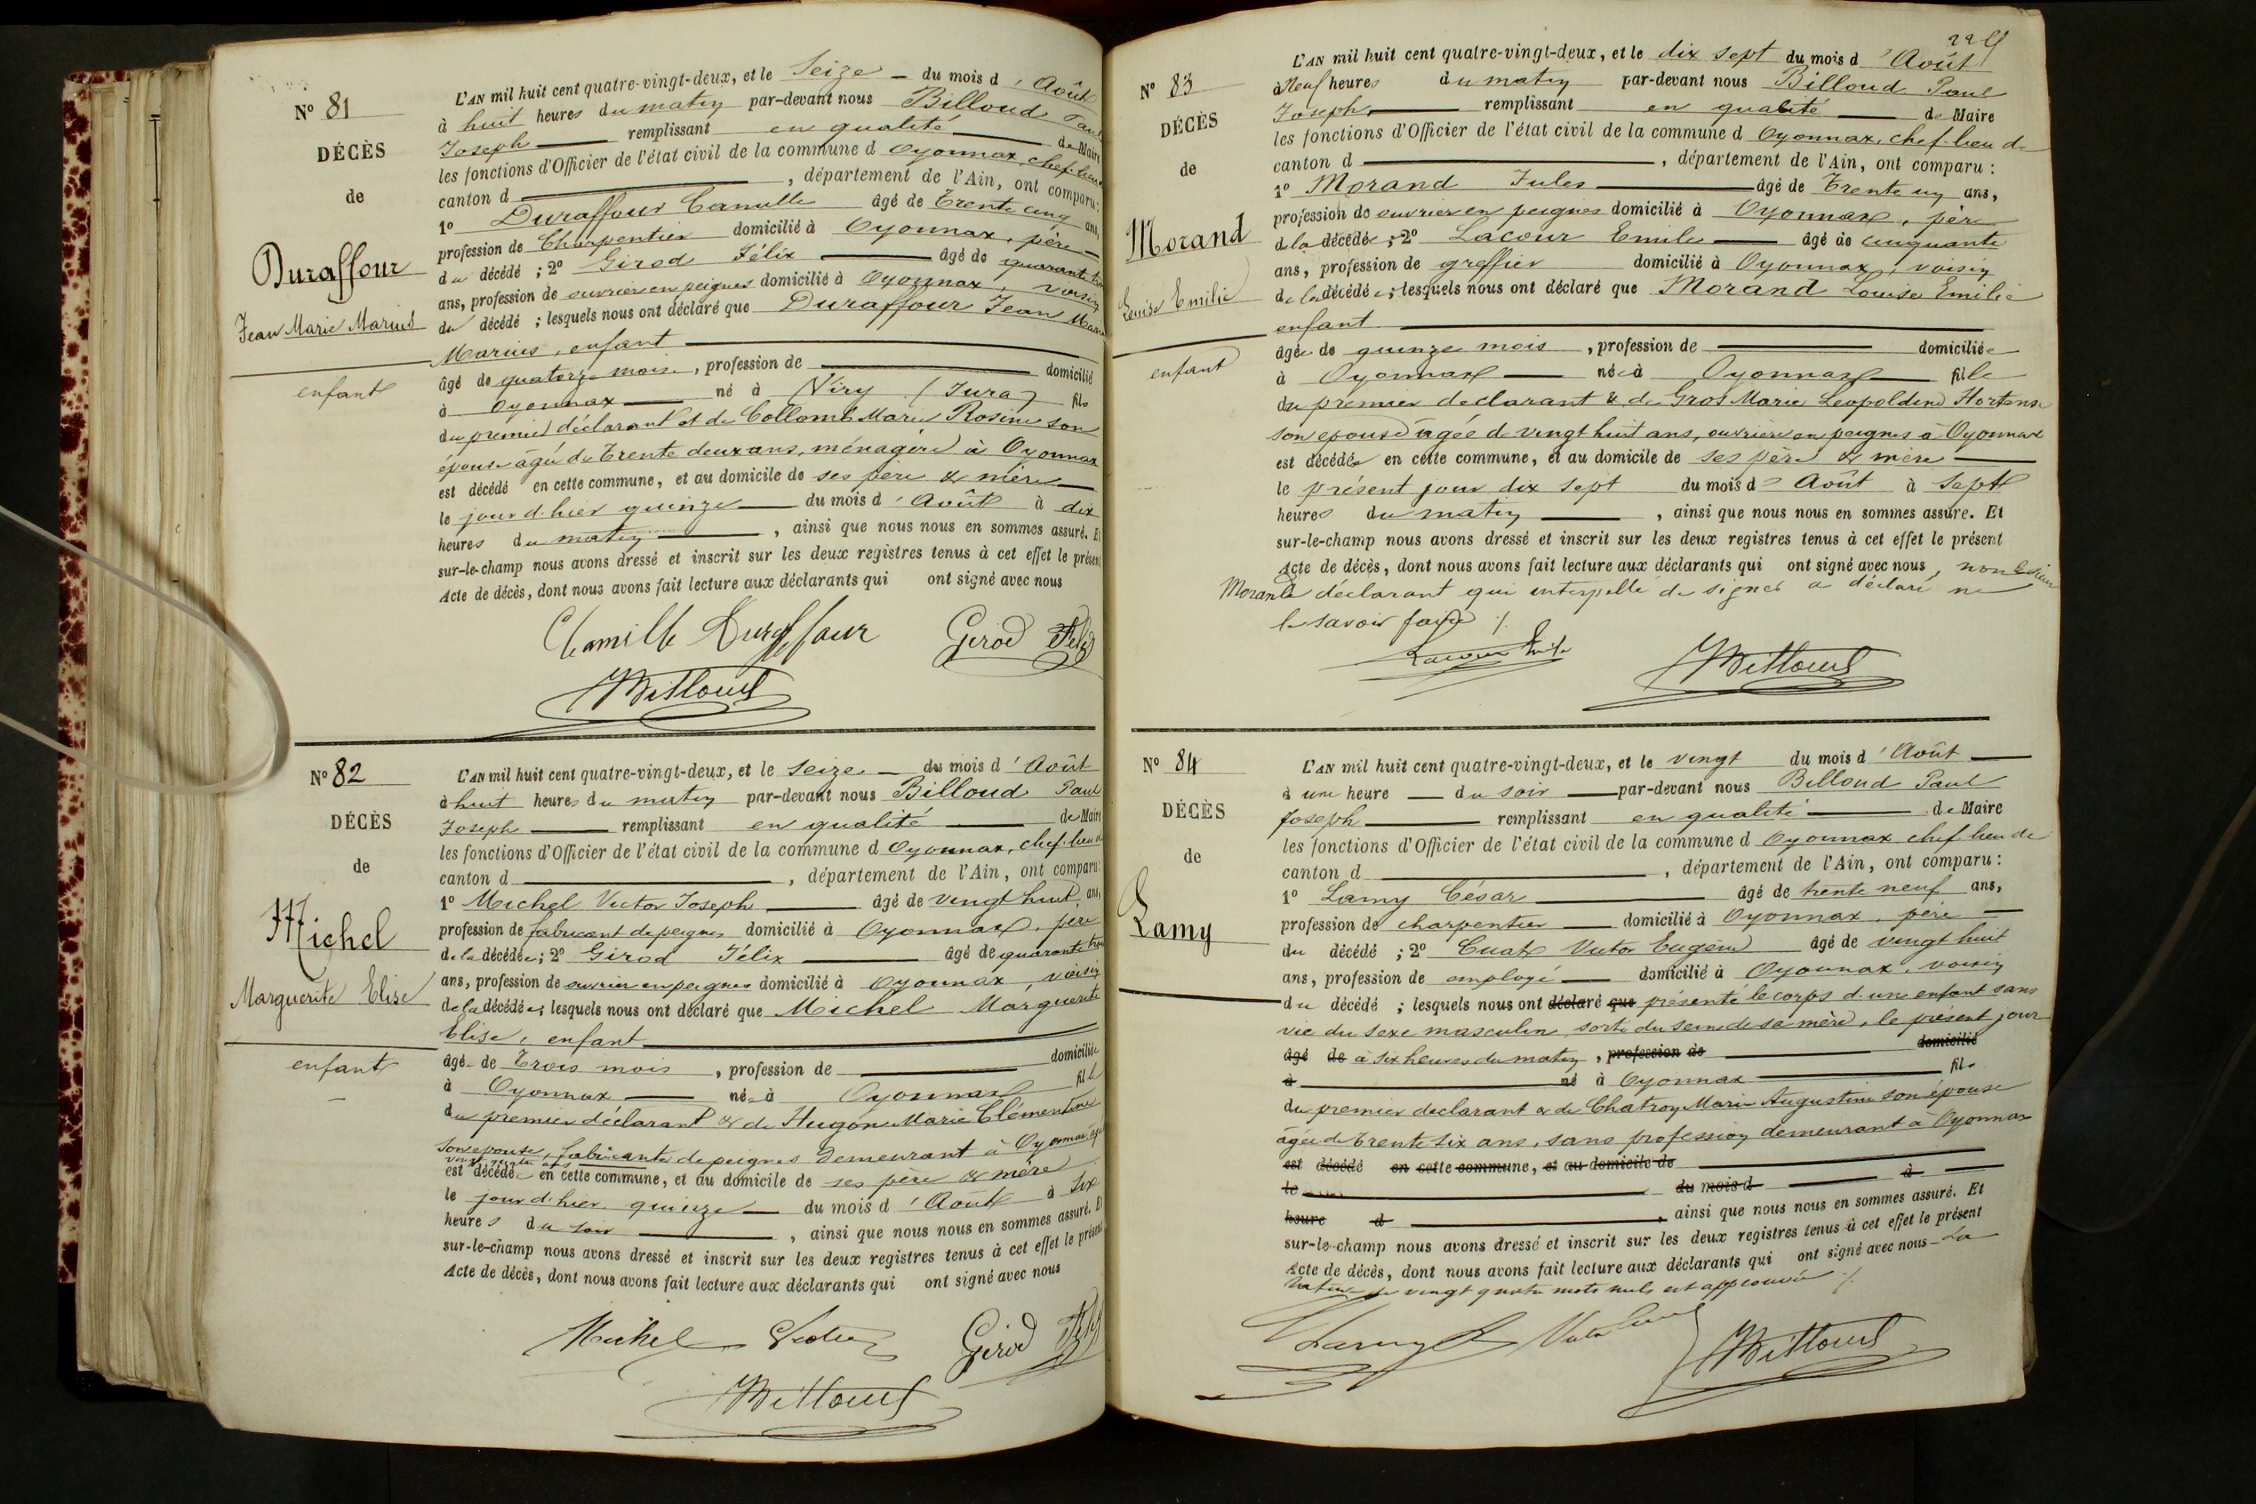 N° 81
DÉCÈS
de
Duraffour
Jean Marie Marius
enfant
L'AN mil huit cent quatre-vingt-deux, et le Seize du mois d'Août
à huit heures du matin par-devant nous Billoud Paul
Joseph remplissant en qualité de Maire
les fonctions d'Officier de l'état civil de la commune d Oyonnax, chef-lieu
canton d , département de l'Ain, ont comparu :
1° Duraffour Camille âgé de Trente cinq ans,
profession de Charpentier domicilié à Oyonnax, père
du décédé ; 2° Girod Félix âgé de quarante trois
ans, profession de ouvrier en peignes domicilié à Oyonnax, voisin
du décédé ; lesquels nous ont déclaré que Duraffour Jean Marie
Marius, enfant
âgé de quatorze mois, profession de domicilié
à Oyonnax né à Viry (Jura) fils
du premier déclarant et de Collomb Marie Rosine son
épouse âgée de Trente deux ans, ménagère à Oyonnax
est décédé en cette commune, et au domicile de ses père & mère
le jour d'hier quinze du mois d'Août à dix
heures du matin , ainsi que nous nous en sommes assuré. Et
sur-le-champ nous avons dressé et inscrit sur les deux registres tenus à cet effet le présent
Acte de décès, dont nous avons fait lecture aux déclarants qui ont signé avec nous
Camille Duraffour Girod Félix
Billoud
N° 82
DÉCÈS
de
Michel
Marguerite Elise
enfant
L'AN mil huit cent quatre-vingt-deux, et le seize du mois d'Août
à huit heures du matin par-devant nous Billoud Paul
Joseph remplissant en qualité de Maire
les fonctions d'Officier de l'état civil de la commune d Oyonnax, chef-lieu d
canton d , département de l'Ain, ont comparu :
1° Michel Victor Joseph âgé de vingt huit ans,
profession de fabricant de peignes domicilié à Oyonnax, père
de la décédée ; 2° Girod Félix âgé de quarante trois
ans, profession de ouvrier en peignes domicilié à Oyonnax, voisin
de la décédée ; lesquels nous ont déclaré que Michel Marguerite
Elise, enfant
âgée de Trois mois , profession de domiciliée
à Oyonnax née à Oyonnax fille
du premier déclarant & de Hugon Marie Clémentine
son épouse, fabricante de peignes demeurant à Oyonnax, âgée
est décédée en cette commune, et au domicile de ses père & mère
le jour d'hier quinze du mois d'Août à six
heures du soir , ainsi que nous nous en sommes assuré. Et
sur-le-champ nous avons dressé et inscrit sur les deux registres tenus à cet effet le présent
Acte de décès, dont nous avons fait lecture aux déclarants qui ont signé avec nous
Michel Victor Girod Félix
Billoud
N° 83
DÉCÈS
de
Morand
Louise Emilie
enfant
L'AN mil huit cent quatre-vingt-deux, et le dix sept du mois d'Août
à Neuf heures du matin par-devant nous Billoud Paul
Joseph remplissant en qualité de Maire
les fonctions d'Officier de l'état civil de la commune d Oyonnax, chef-lieu de
canton d , département de l'Ain, ont comparu :
1° Morand Jules âgé de Trente un ans,
profession de ouvrier en peignes domicilié à Oyonnax, père
de la décédée ; 2° Lacour Emile âgé de cinquante
ans, profession de greffier domicilié à Oyonnax, voisin
de la décédée ; lesquels nous ont déclaré que Morand Louise Emilie
enfant
âgée de quinze mois , profession de domiciliée
à Oyonnax née à Oyonnax fille
du premier déclarant & de Gros Marie Léopoldine Hortense
son épouse âgée de vingt huit ans, ouvrière en peignes à Oyonnax
est décédée en cette commune, et au domicile de ses père & mère
le présent jour dix sept du mois d'Août à sept
heures du matin , ainsi que nous nous en sommes assuré. Et
sur-le-champ nous avons dressé et inscrit sur les deux registres tenus à cet effet le présent
Acte de décès, dont nous avons fait lecture aux déclarants qui ont signé avec nous, non le sieur
Morand déclarant qui interpellé de signer a déclaré ne
le savoir faire ./.
Lacour Emile Billoud
N° 84
DÉCÈS
de
Lamy
L'AN mil huit cent quatre-vingt-deux, et le vingt du mois d'Août
à une heure du soir par-devant nous Billoud Paul
Joseph remplissant en qualité de Maire
les fonctions d'Officier de l'état civil de la commune d Oyonnax chef-lieu de
canton d , département de l'Ain, ont comparu :
1° Lamy César âgé de trente neuf ans,
profession de charpentier domicilié à Oyonnax, père
du décédé ; 2° Cuat Victor Eugène âgé de vingt huit
ans, profession de employé domicilié à Oyonnax, voisin
du décédé ; lesquels nous ont déclaré que présenté le corps d'un enfant sans
vie du sexe masculin, sorti du sein de sa mère, le présent jour
âgé de à six heures du matin, profession de domicilié
à né à Oyonnax fils
du premier déclarant & de Chatroy Marie Augustine son épouse
âgée de Trente six ans, sans profession demeurant à Oyonnax
est décédé en cette commune, et au domicile de
le du mois d à
heure d , ainsi que nous nous en sommes assuré. Et
sur-le-champ nous avons dressé et inscrit sur les deux registres tenus à cet effet le présent
Acte de décès, dont nous avons fait lecture aux déclarants qui ont signé avec nous - La
rature de vingt quatre mots nuls est approuvée ./.
Lamy Billoud